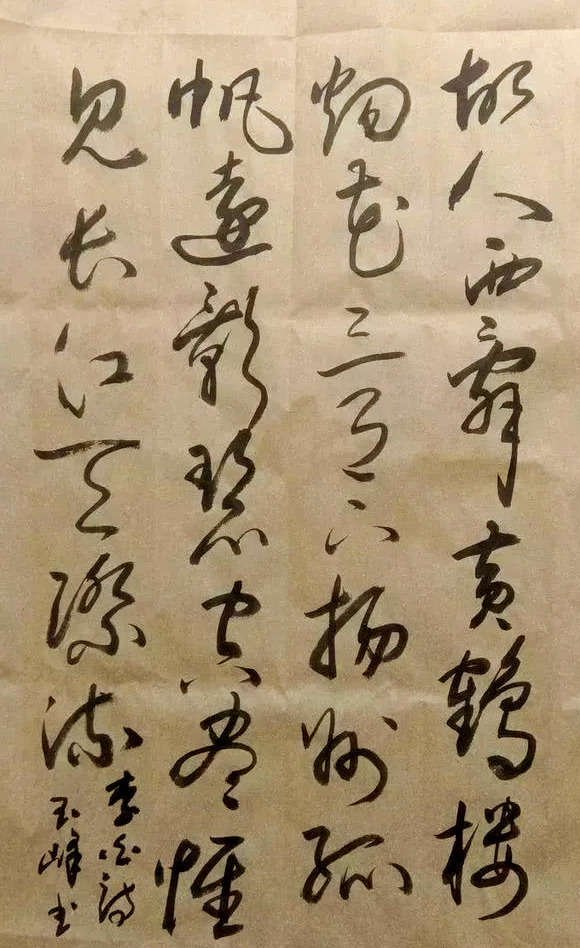 故人西辭黄鶴樓
烟花三月下揚州孤
帆遠影碧空盡惟
見長江天際流
李白詩
玉峰书